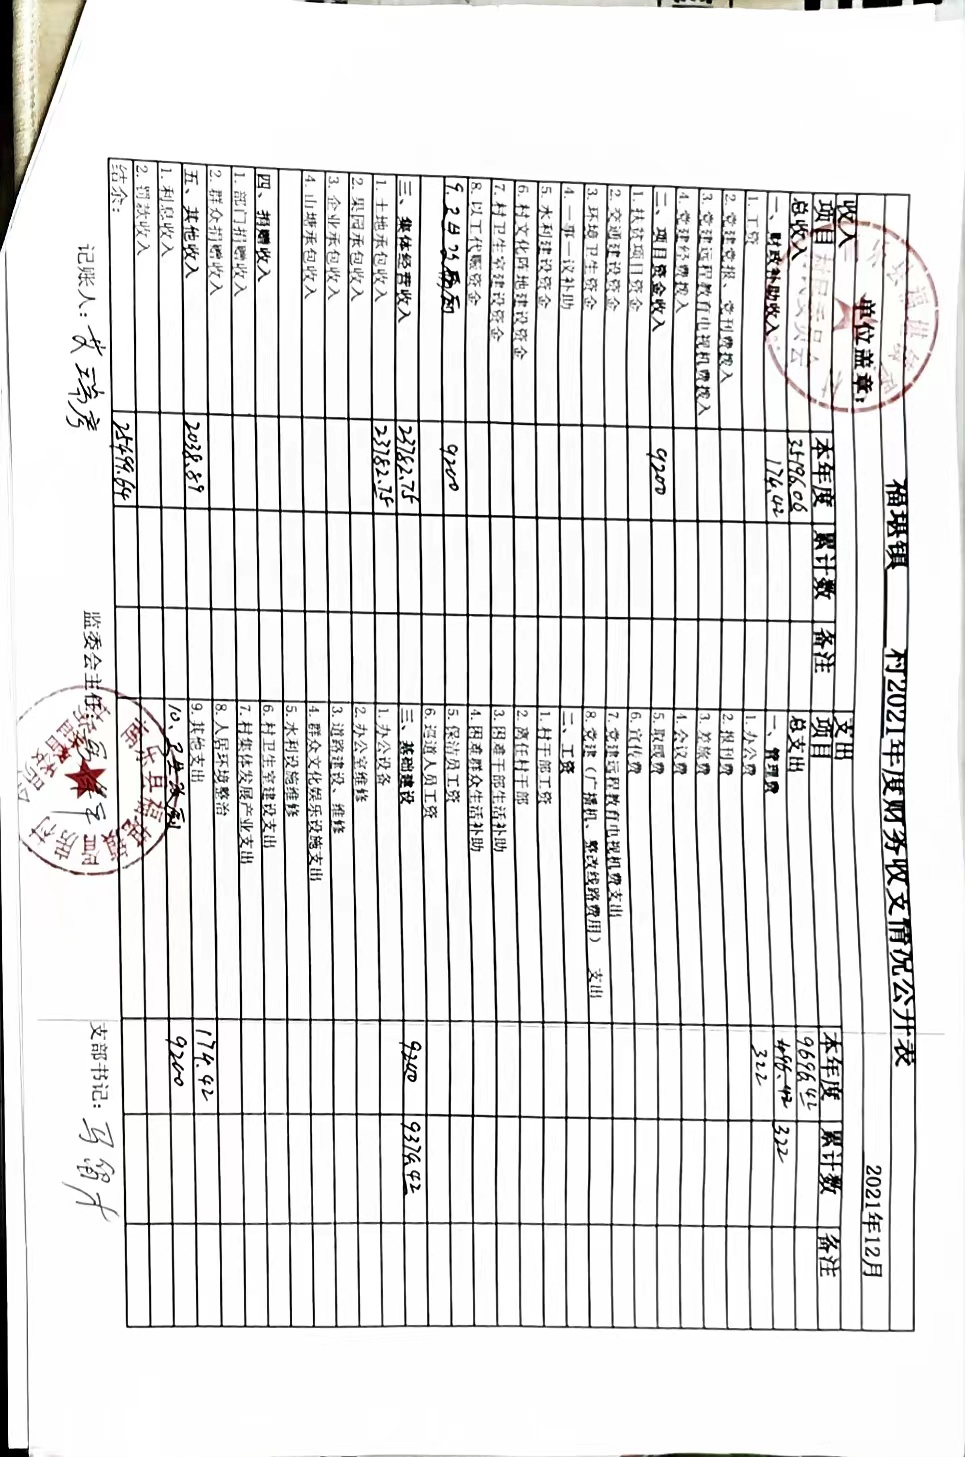 福堪镇 村2021年度财务收支情况公开表
单位盖章： 2021年12月
收入 支出
项目 本年度 累计数 备注 项目 本年度 累计数 备注
总收入 35196.06 总支出 9696.42
一、财政补助收入 174.42 一、管理费 496.42 322
1.工资 1.办公费 322
2.党建党报、党刊费拨入 2.报刊费
3.党建远程教育电视机费拨入 3.差旅费
4.党建经费拨入 4.会议费
二、项目资金收入 9200 5.取暖费
1.扶贫项目资金 6.宣传费
2.交通建设资金 7.党建远程教育电视机费支出
3.环境卫生资金 8.党建（广播机、整改线路费用） 支出
4.一事一议补助 二、工资
5.水利建设资金 1.村干部工资
6.村文化阵地建设资金 2.离任村干部
7.村卫生室建设资金 3.困难干部生活补助
8.以工代赈资金 4.困难群众生活补助
9. 9200 5.保洁员工资
6.巡道人员工资
三、集体经营收入 23782.75 三、基础建设 9200 9374.42
1.土地承包收入 23782.75 1.办公设备
2.果园承包收入 2.办公室维修
3.企业承包收入 3.道路建设、维修
4.山塘承包收入 4.群众文化娱乐设施支出
5.水利设施维修
四、捐赠收入 6.村卫生室建设支出
1.部门捐赠收入 7.村集体发展产业支出
2.群众捐赠收入 8.人居环境整治
五、其他收入 2038.89 9.其他支出 174.42
1.利息收入 10、卫生 9200
2.罚款收入
结余： 25499.64
记账人： 监委会主任： 支部书记：
村民委员会